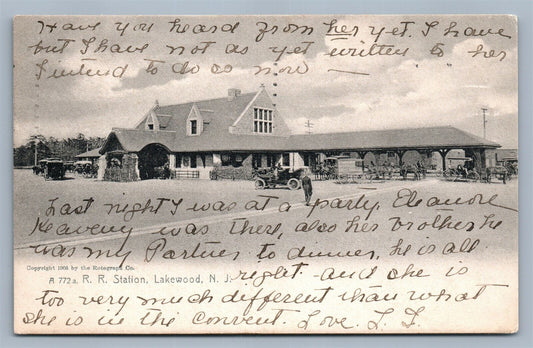 Have you heard from her yet. I have
but I have not as yet written to her
I intend to do so now —
Last night I was at a party. Eleanore
Heaveny was there, also her brother he
was my Partner to dinner, he is all
Copyright 1905 by the Rotograph Co.
right - and she is
A 772 a. R. R. Station, Lakewood, N. J.
too very much different than what
she is in the convent. Love. L. F.